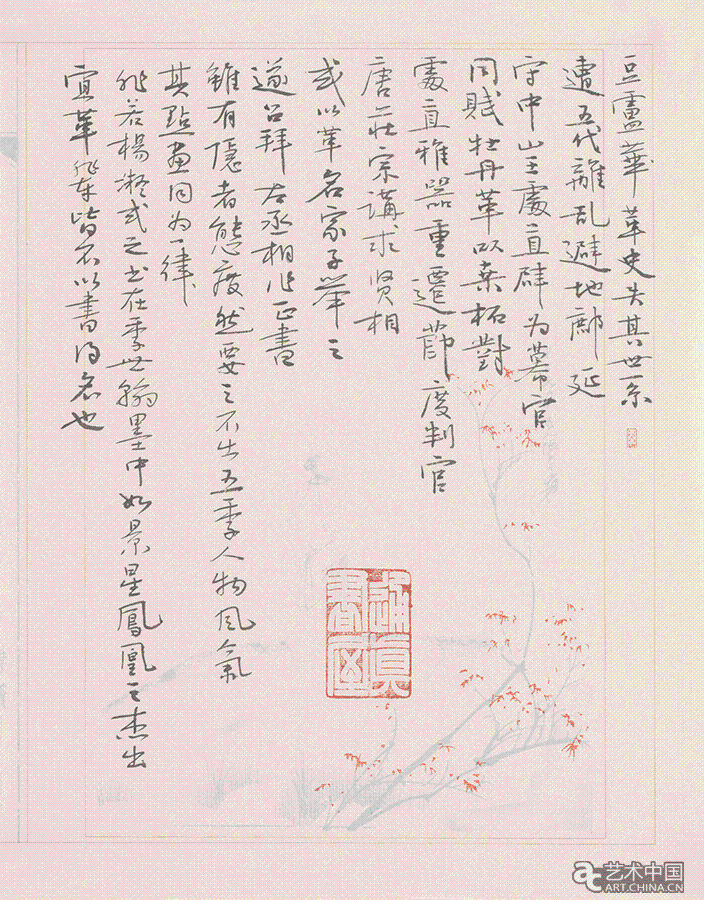 豆盧華 革史失其世系
遭五代離乱避地鄜延
守中山王處直辟为幕官
同賦牡丹革以桑柘對
處直雅器重遷節度判官
唐莊宗講求贤相
或以革名家子举之
遂召拜左丞相作正書
雖有隱者態度然要之不出五季人物风氣
其點畫同为一律
非若楊凝式之书在季世翰墨中如景星鳳凰之杰出
宜革輩皆不以書得名也
艺术中国
ART.CHINA.CN